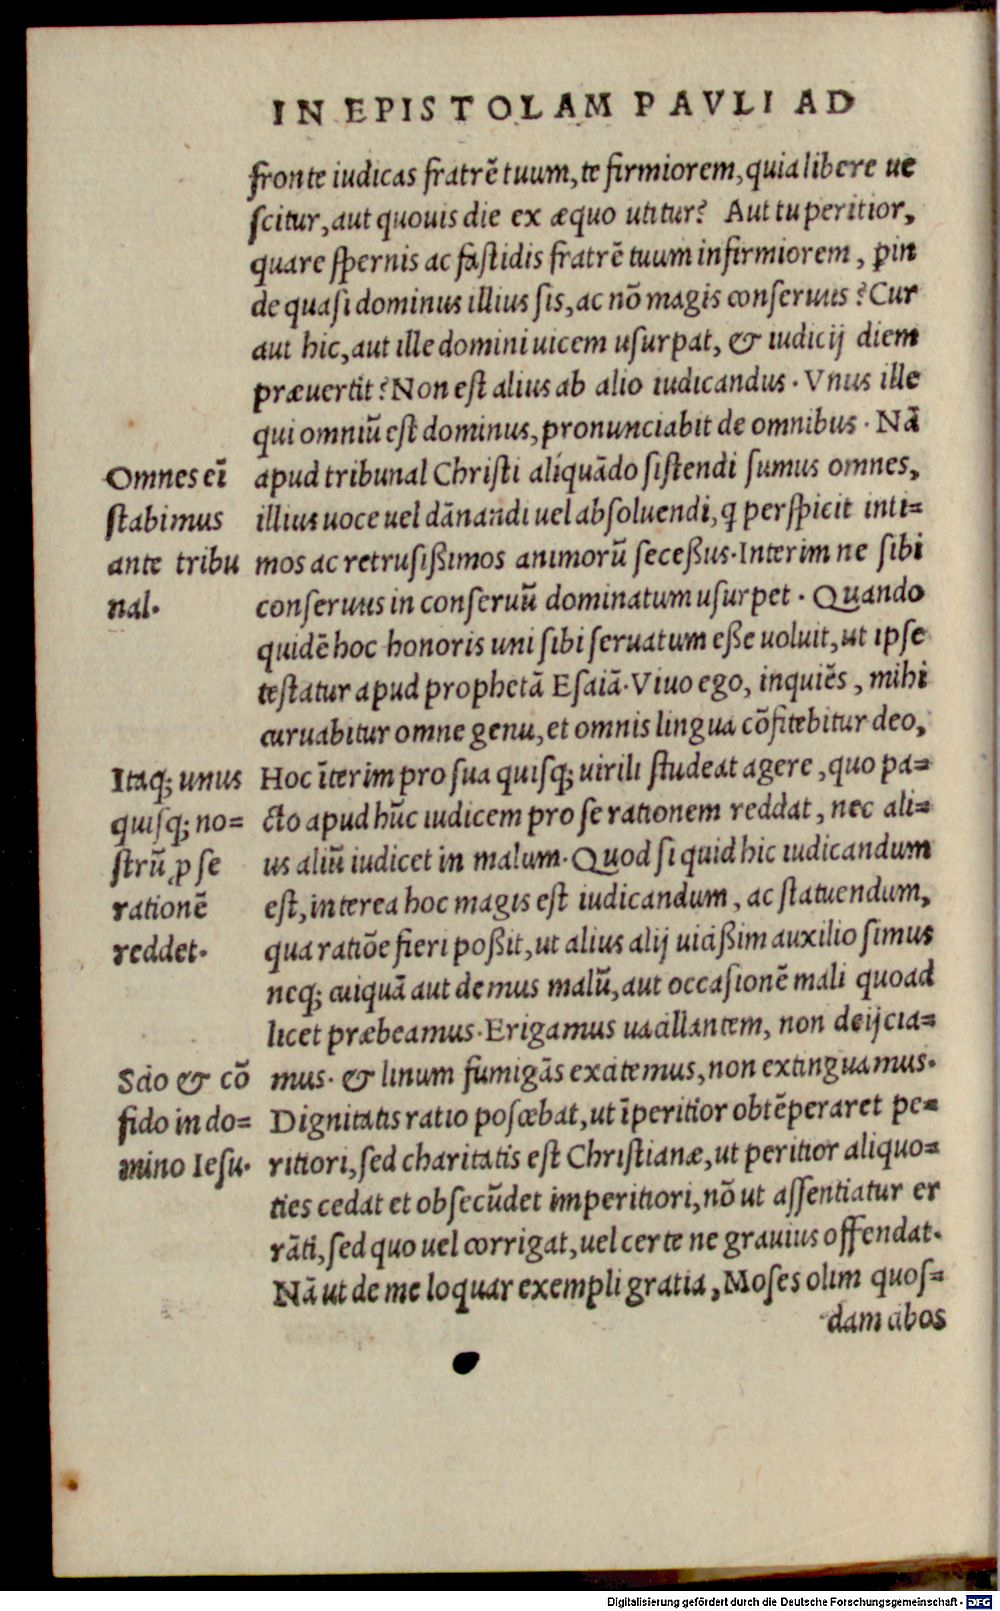 IN EPISTOLAM PAVLI AD
fronte iudicas fratrē tuum, te firmiorem, quia libere ue
scitur, aut quouis die ex æquo utitur? Aut tu peritior,
quare spernis ac fastidis fratrē tuum infirmiorem, ꝑin
de quasi dominus illius sis, ac nō magis conseruus? Cur
aut hic, aut ille domini uicem usurpat, & iudicij diem
præuertit? Non est alius ab alio iudicandus. Vnus ille
qui omniū est dominus, pronunciabit de omnibus. Nā
apud tribunal Christi aliquādo sistendi sumus omnes,
illius uoce uel dānandi uel absoluendi, q perspicit inti=
mos ac retrusißimos animorū seceßus. Interim ne sibi
conseruus in conseruū dominatum usurpet. Quando
quidē hoc honoris uni sibi seruatum eße uoluit, ut ipse
testatur apud prophetā Esaiā. Viuo ego, inquiēs, mihi
curuabitur omne genu, et omnis lingua cōfitebitur deo,
Hoc īterim pro sua quisq; uirili studeat agere, quo pa=
cto apud hūc iudicem pro se rationem reddat, nec ali=
us aliū iudicet in malum. Quod si quid hic iudicandum
est, interea hoc magis est iudicandum, ac statuendum,
qua ratiōe fieri poßit, ut alius alij uicißim auxilio simus
neq; cuiquā aut demus malū, aut occasionē mali quoad
licet præbeamus. Erigamus uacillantem, non deijcia=
mus. & linum fumigās excitemus, non extinguamus.
Dignitatis ratio poscebat, ut īperitior obtēperaret pe=
ritiori, sed charitatis est Christianæ, ut peritior aliquo=
ties cedat et obsecūdet imperitiori, nō ut assentiatur er
rāti, sed quo uel corrigat, uel certe ne grauius offendat.
Nā ut de me loquar exempli gratia, Moses olim quos=
dam cibos
Omnes eī
stabimus
ante tribu
nal.
Itaq; unus
quisq; no=
strū ꝓ se
rationē
reddet.
Scio & cō
fido in do=
mino Iesu.
Digitalisierung gefördert durch die Deutsche Forschungsgemeinschaft - DFG